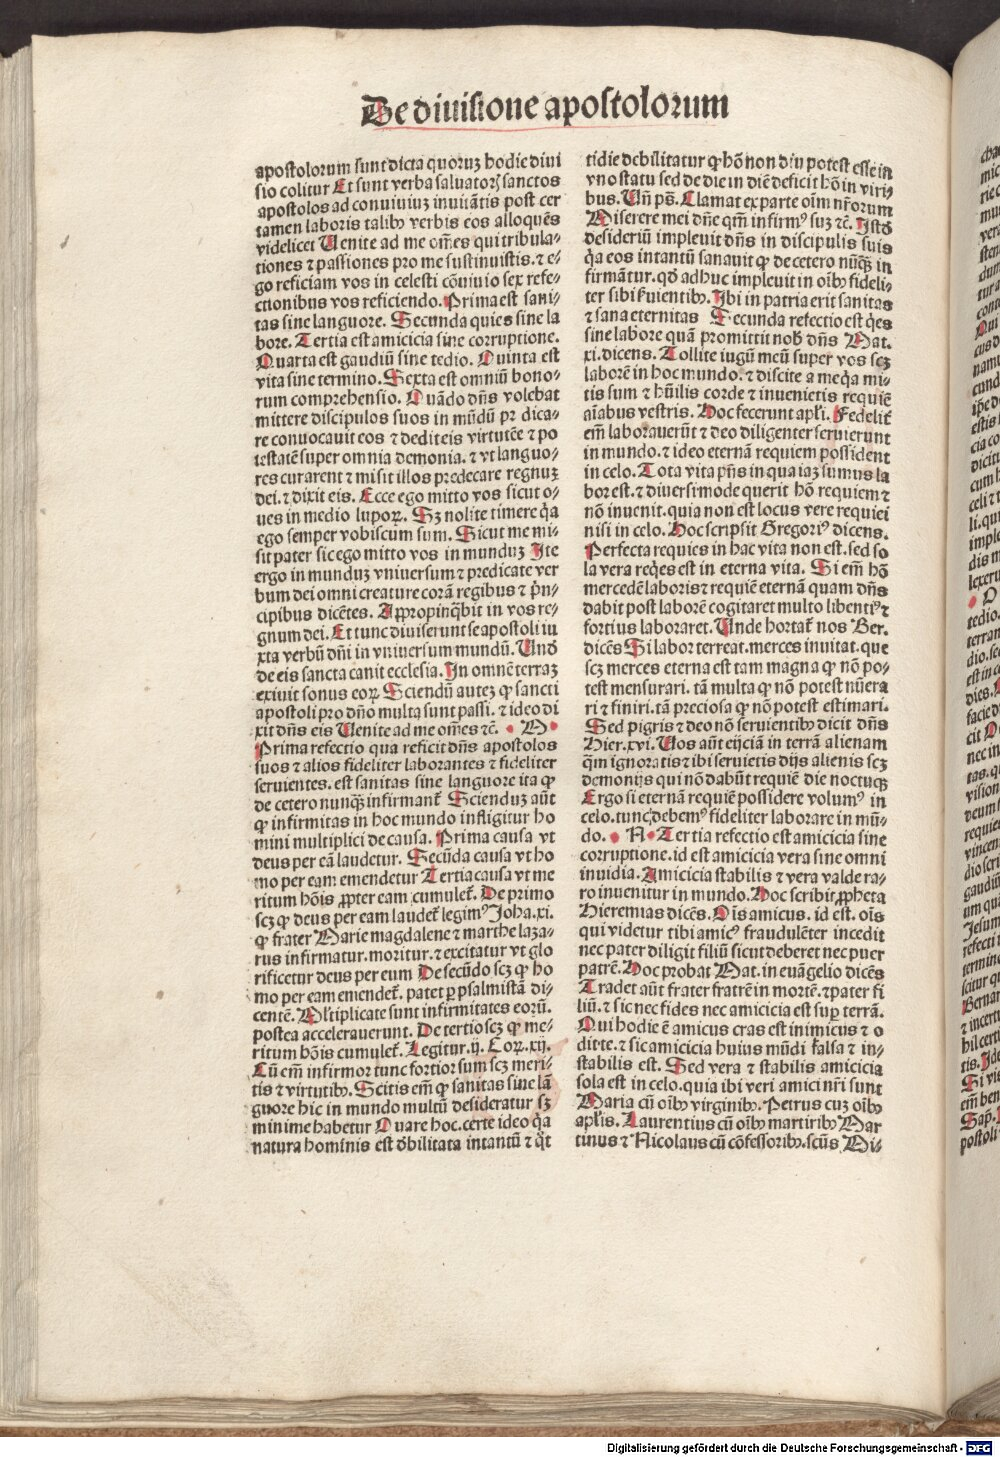 De diuisione apostolorum
apostolorum sunt dicta quoruʒ hodie diui
sio colitur Et sunt verba saluatorꝭ sanctos
apostolos ad conuiuiuʒ inuitātis post cer
tamen laboris talibꝰ verbis eos alloquēs
videlicet Uenite ad me om̄es qui tribula⸗
tiones ⁊ passiones pro me sustinuistis. ⁊ e⸗
go reficiam vos in celesti cōuiuio sex refe⸗
ctionibus vos reficiendo. Prima est sani⸗
tas sine languore. Secunda quies sine la
bore. Tertia est amicicia sine corruptione.
Quarta est gaudiū sine tedio. Quinta est
vita sine termino. Sexta est omniū bono⸗
rum comprehensio. Quādo dn̄s volebat
mittere discipulos suos in mūdū pr dica⸗
re conuocauit eos ⁊ dedit eis virtutē e ⁊ po
testatē super omnia demonia. ⁊ vt languo⸗
res curarent ⁊ misit illos predecare regnuʒ
dei. ⁊ dixit eis. Ecce ego mitto vos sicut o⸗
ues in medio lupoꝝ. Sʒ nolite timere q̄a
ego semper vobiscum sum. Sicut me mi⸗
sit pater sic ego mitto vos in munduʒ Ite
ergo in munduʒ vniuersum ⁊ predicate ver
bum dei omni creature corā regibus ⁊ p̄n⸗
cipibus dicētes. Appropinq̄bit in vos re⸗
gnum dei. Et tunc diuiserunt se apostoli iu
xta verbū dn̄i in vniuersum mundū. Unđ
de eis sancta canit ecclesia. In omnē terraʒ
exiuit sonus eoꝝ Sciendū auteʒ ꝙ sancti
apostoli pro dn̄o multa sunt passi. ⁊ ideo di
xit dn̄s eis Uenite ad me om̄es ⁊c̄. • M •
Prima refectio qua reficit dn̄s apostolos
suos ⁊ alios fideliter laborantes ⁊ fideliter
seruientes. est sanitas sine languore ita ꝙ
de cetero nunqʒ infirmant̄ Scienduʒ aūt
ꝙ infirmitas in hoc mundo infligitur ho
mini multiplici de causa. Prima causa vt
deus per eā laudetur. Secūda causa vt ho
mo per eam emendetur Tertia causa vt me
ritum hōis ꝓpter eam cumulet̄. De primo
scʒ ꝙ deus per eam laudet̄ legimꝰ Joha. xi.
ꝙ frater Marie magdalene ⁊ marthe laza⸗
rus infirmatur. moritur. ⁊ excitatur vt glo
rificetur deus per eum De secūdo scʒ ꝙ ho
mo per eam emendet̄. patet ꝑ psalmistā di⸗
centē. Mltiplicate sunt infirmitates eorū.
postea accelerauerunt. De tertio scʒ ꝙ me⸗
ritum hōis cumulet̄. Legitur. ij. Coꝝ. xij.
Cū em̄ infirmor tunc fortior sum scʒ meri⸗
tis ⁊ virtutibꝰ. Scitis em̄ ꝙ sanitas sine lā
guore hic in mundo multū desideratur sʒ
minime habetur Quare hoc. certe ideo q̄a
natura hominis est đbilitata intantū ⁊ q̄t
tidie debilitatur ꝙ hō non diu potest esse in
vno statu sed de die in diē deficit hō in viri⸗
bus. Un̄ ps̄. Clamat ex parte oīm nr̄orum
Miserere mei dn̄e qm̄ infirmꝰ suʒ ⁊c̄. Istđ
desideriū impleuit dn̄s in discipulis suis
q̄a eos intantū sanauit ꝙ de cetero nūqʒ in
firmātur. qđ adhuc impleuit in oībꝰ fideli⸗
ter sibi ẜuientibꝰ. Ibi in patria erit sanitas
⁊ sana eternitas Secunda refectio est q̄es
sine labore quā promittit nob̄ dn̄s Mat.
xi. dicens. Tollite iugū meū super vos scʒ
laborē in hoc mundo. ⁊ discite a me q̄a mi⸗
tis sum ⁊ hūilis corde ⁊ inuenietis requiē
aīabus vestris. Hoc fecerunt apl̄i. Fedelit̄
em̄ laborauerūt ⁊ deo diligenter seruierunt
in mundo. ⁊ ideo eternā requiem possident
in celo. Tota vita p̄ns in qua iaʒ sumus la
bor est. ⁊ diuersimode querit hō requiem ⁊
nō inuenit. quia non est locus vere requiei
nisi in celo. Hoc scripsit Gregoriꝰ dicens.
Perfecta requies in hac vita non est. sed so
la vera req̄es est in eterna vita. Si em̄ hō
mercedē laboris ⁊ requiē eternā quam dn̄s
dabit post laborē cogitaret multo libentiꝰ ⁊
fortius laboraret. Unde hortat̄ nos Ber.
dicēs Si labor terreat. merces inuitat. que
scʒ merces eterna est tam magna ꝙ nō po⸗
test mensurari. tā multa ꝙ nō potest nūera
ri ⁊ finiri. tā preciosa ꝙ nō potest estimari.
Sed pigris ⁊ deo nō seruientibꝰ dicit dn̄s
Hier. xvi. Uos aūt eijciā in terrā alienam
q̄m ignoratis ⁊ ibi seruietis dijs alienis scʒ
demonijs qui nō dabūt requiē die noctuqʒ
Ergo si eternā requiē possidere volumꝰ in
celo. tunc debemꝰ fideliter laborare in mū⸗
do. • N • Tertia refectio est amicicia sine
corruptione. id est amicicia vera sine omni
inuidia. Amicicia stabilis ⁊ vera valde ra⸗
ro inuenitur in mundo. Hoc scribit ꝓpheta
Hieremias dicēs. Oīs amicus. id est. oīs
qui videtur tibi amicꝰ fraudulēter incedit
nec pater diligit filiū sicut deberet nec puer
patrē. Hoc probat Mat. in euāgelio dicēs
Tradet aūt frater fratrē in mortē. ⁊ pater fi
liū. ⁊ sic nec fides nec amicicia est suꝑ terrā.
Qui hodie ē amicus cras est inimicus ⁊ o
dit te. ⁊ sic amicicia huius mūdi falsa ⁊ in⸗
stabilis est. Sed vera ⁊ stabilis amicicia
sola est in celo. quia ibi veri amici nr̄i sunt
Maria cū oībꝰ virginibꝰ. Petrus cuʒ oībꝰ
apl̄is. Laurentius cū oībꝰ martiribꝰ Mar
tinus ⁊ Nicolaus cū cōfessoribꝰ. scūs Mi⸗
Digitalisierung gefördert durch die Deutsche Forschungsgemeinschaft - DFG